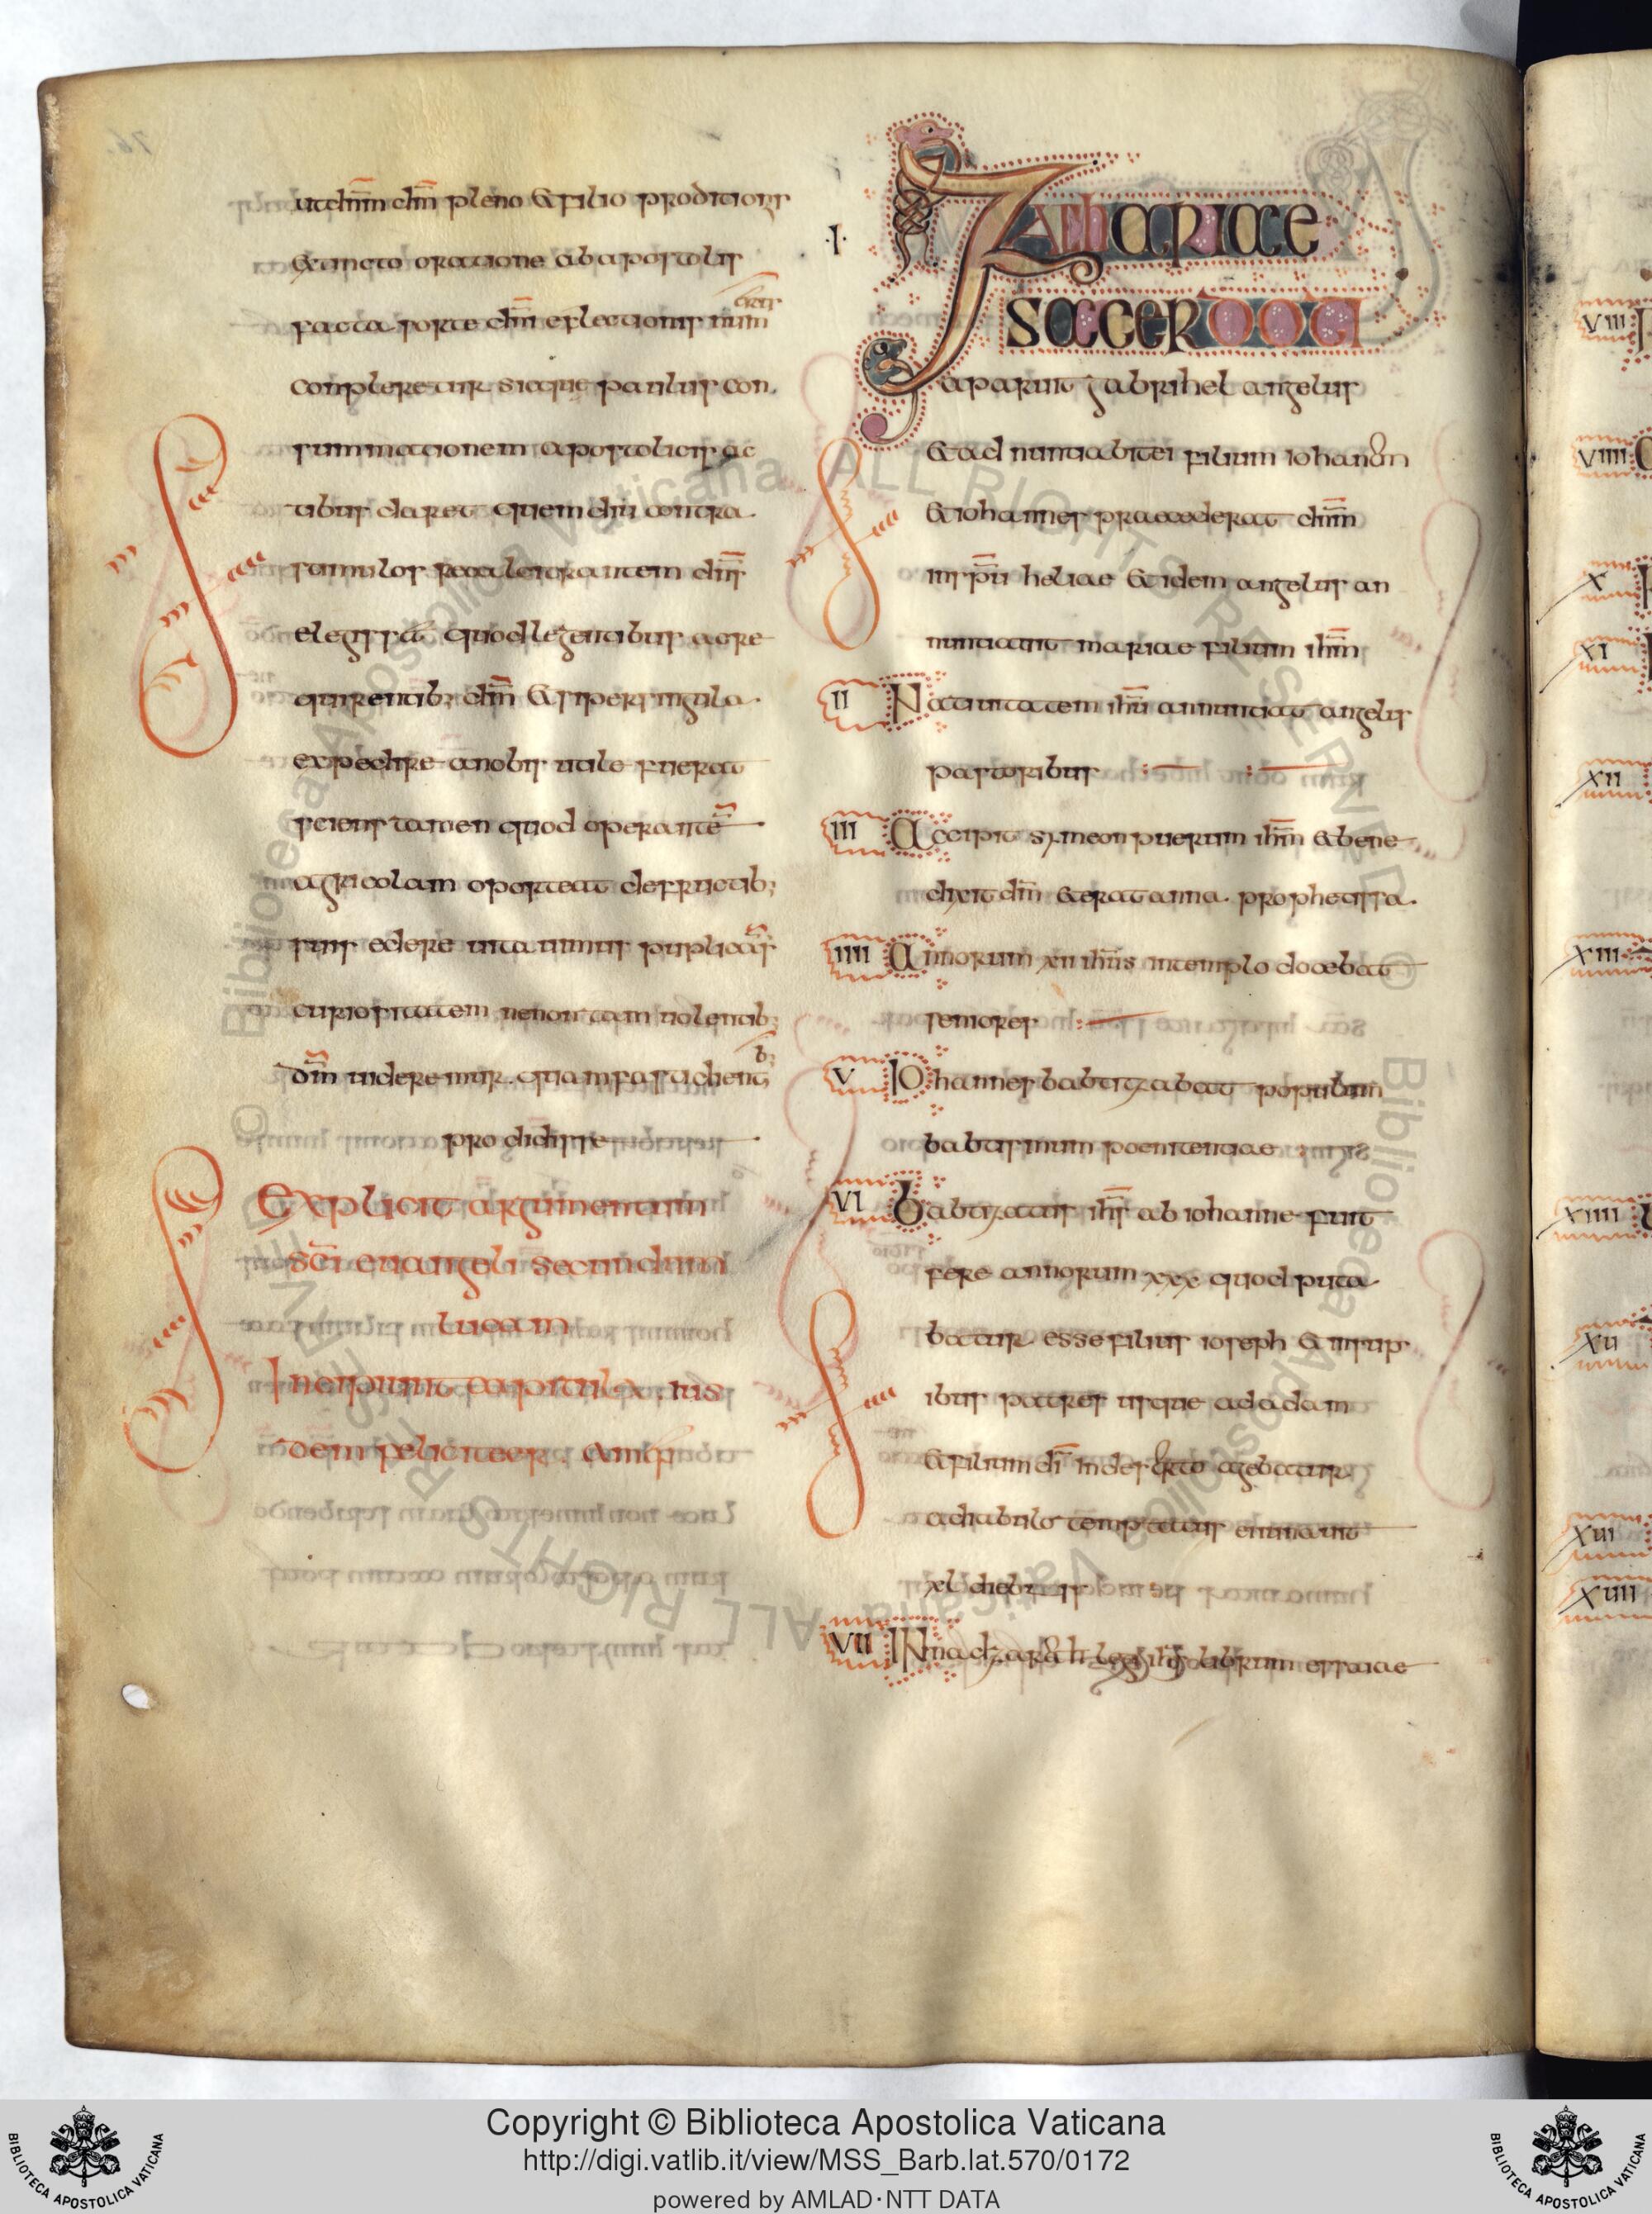 ut dnm dm pleno & filio proditionis
extincto oratione ab apostolis
facta sorte dni electionis num
erus
conpleretur sicque paulus con
summationem apostolicis ac
tibus daret quem diu contra
stimulos recalcitrantem dns
elegisset quod legentibus ac re
quirentib; dm & si per singula
expediri a nobis utile fuerat
sciens tamen quod operantē
agricolam oporteat de fructib;
suis edere uitauimus puplicās
curiositatem ne non tam uolentib;
dm uideremur quam fastidientib;
prodidisse
Explicit argumentum
sci euangeli secundum
lucam
Incipiunt capitula eius
dem feliciter. Am
·I· Zathariae
sacerdoti
aparuit gabrihel angelus
& adnuntiabit ei filium iohannen
& iohannes praecederat dnm
in spu heliae & idem angelus an
nuntiauit mariae filium ihm
II Natiuitatem ihu annuntiat angelus
pastoribus
III Accipit symeon puerum ihm & bene
dixit dm & erat anna prophetissa
IIII Annorum xii ihus in templo docebat
seniores
V Iohannes babtizabat populum
babtismum poenitentiae
VI babtizatur ihs ab iohanne fuit
fere annorum xxx quod puta
batur esse filius ioseph & insup
ibus patres usque ad adam
& filium di in deserto agebatur
a diabulo temptatur
xl diebus
VII IN nazareth legit ihs librum essaiae
VIII
VIIII
X
XI
XII
XIII
XIIII
XU
XUI
XUIII
© Biblioteca Apostolica Vaticana ALL RIGHTS RESERVED
© Biblioteca Apostolica Vaticana ALL RIGHTS RESERVED
Copyright © Biblioteca Apostolica Vaticana
http://digi.vatlib.it/view/MSS_Barb.lat.570/0172
powered by AMLAD·NTT DATA
BIBLIOTECA APOSTOLICA VATICANA
BIBLIOTECA APOSTOLICA VATICANA